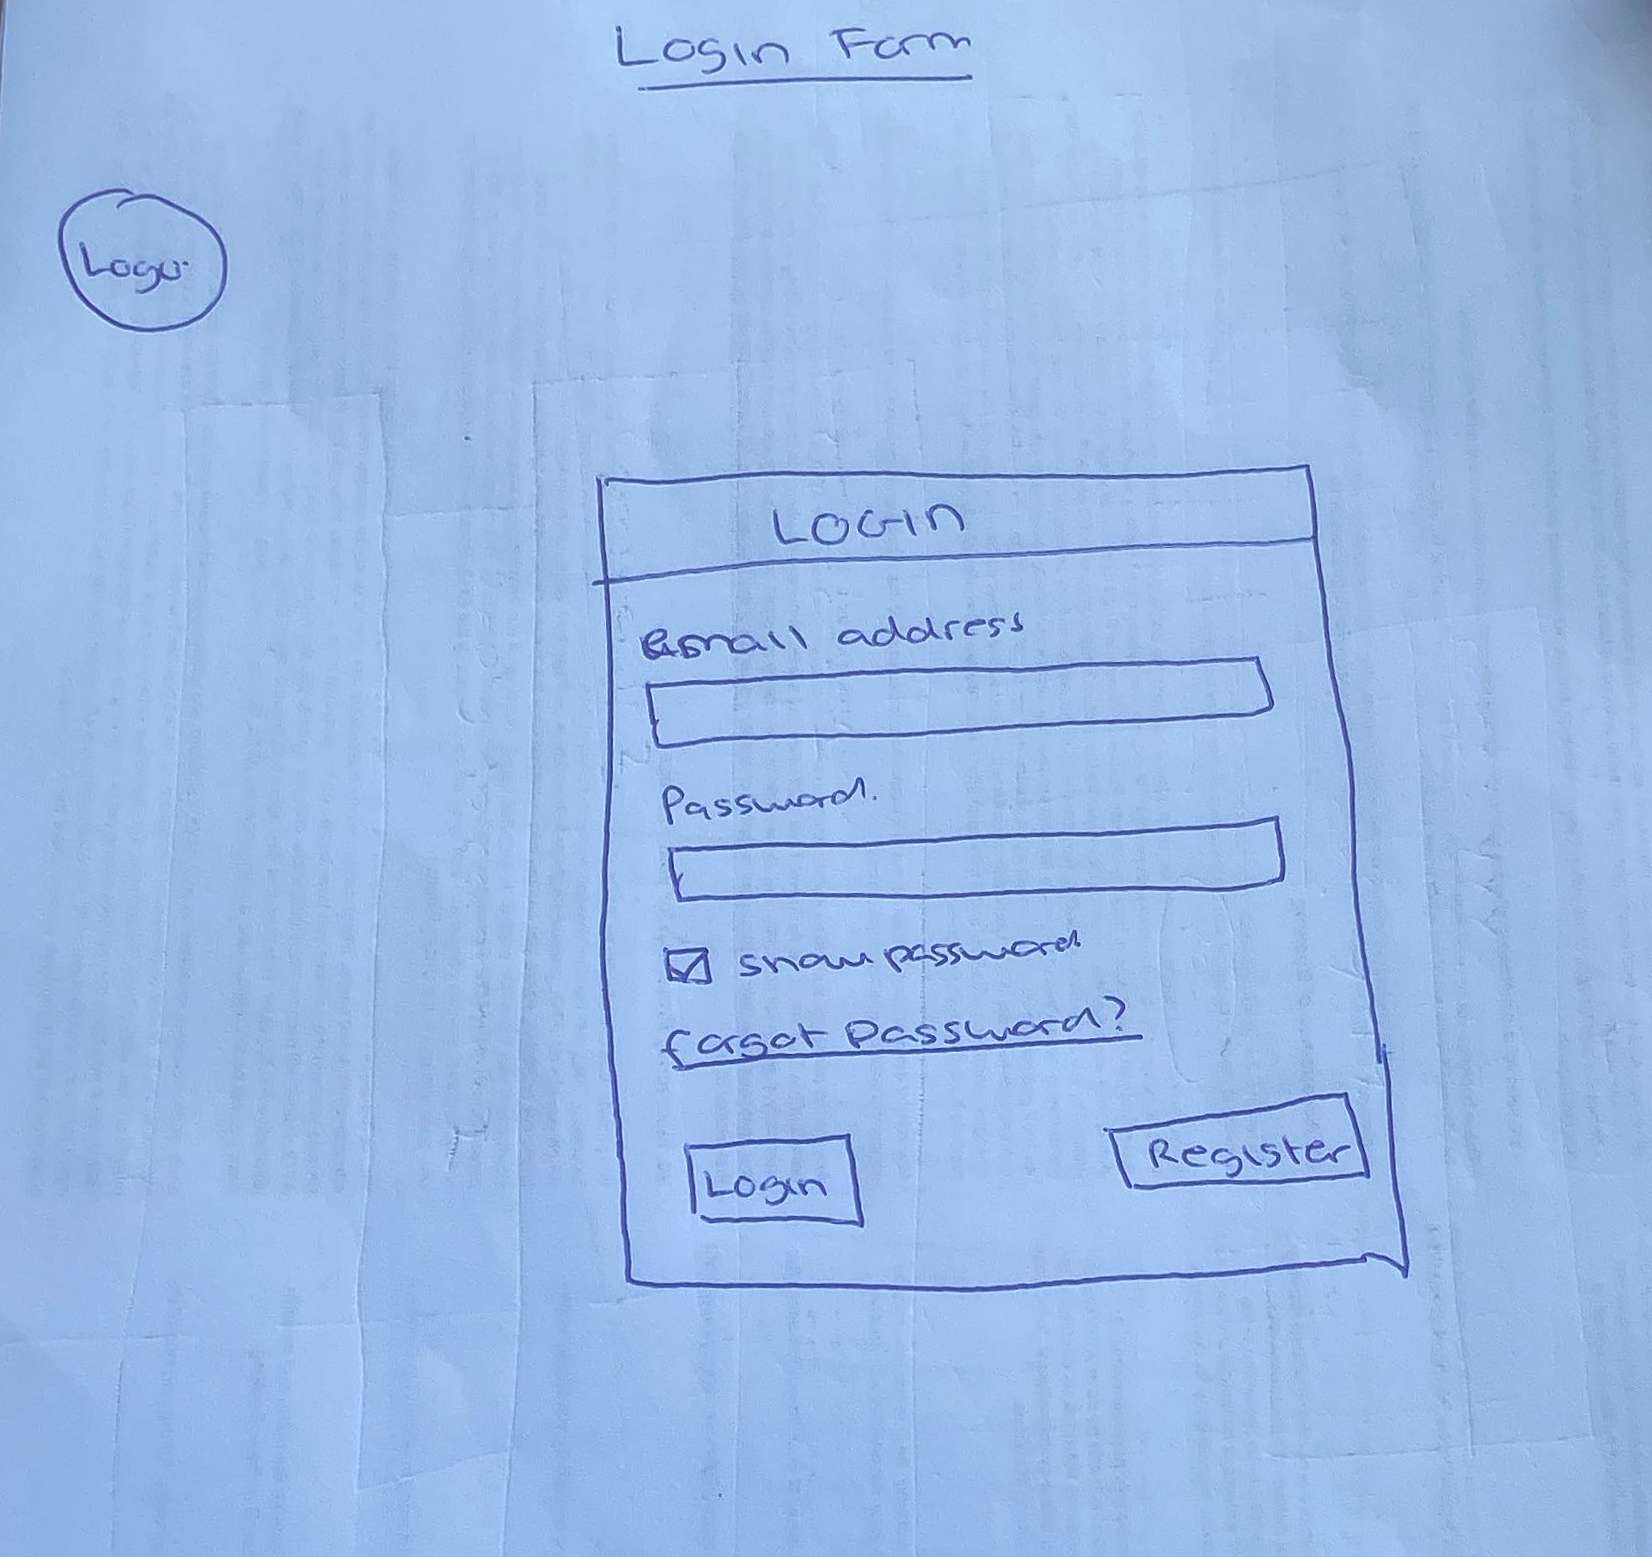 Login Form
Logo
LOGIN
Email address
Password.
show password
forgot Password?
Login
Register